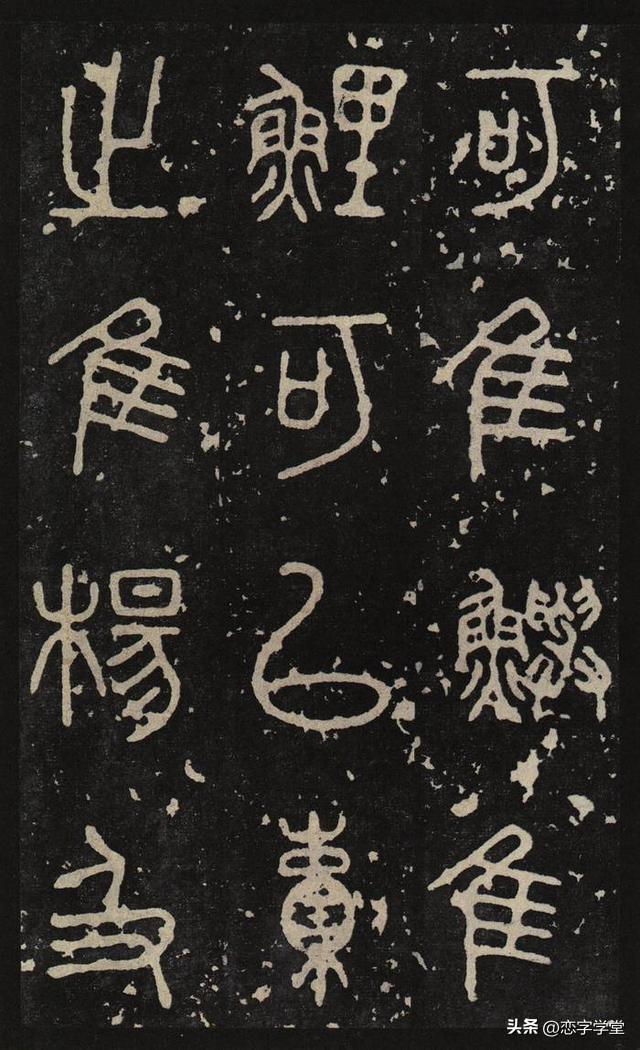 可隹鱮隹
鯉可以橐
之隹楊及
头条 @恋字学堂